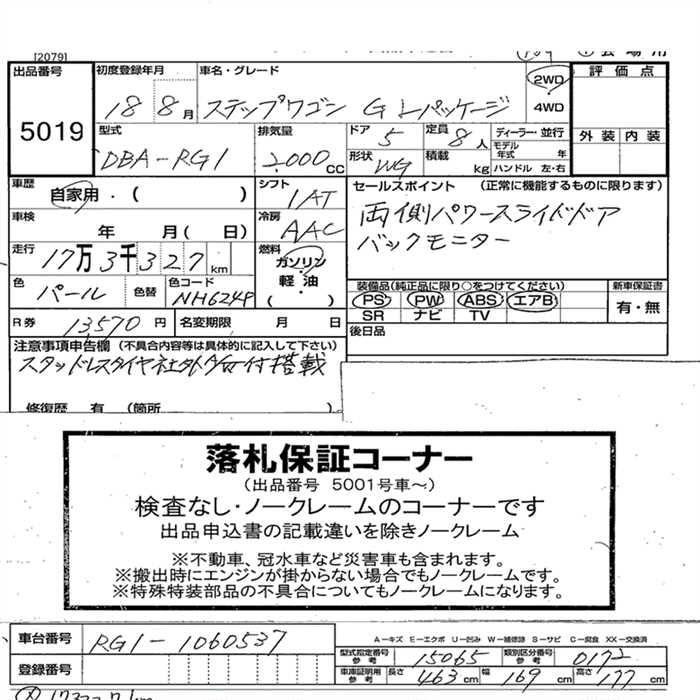 [2079]
出品番号 初度登録年月 車名・グレード 2WD 評価点
5019 18 8月 ステップワゴン G Lパッケージ 4WD
外装 内装
型式 排気量 ドア 定員 ディーラー・並行
DBA-RG1 2000cc 5 8人 モデル年式 年
形状 WG 積載 kg ハンドル 左・右
車歴 自家用・( ) シフト セールスポイント (正常に機能するものに限ります)
1AT
車検 年 月( 日) 冷房 AAC 両側パワースライドドア
バックモニター
走行 17万3千327km 燃料 ガソリン・軽油・( )
色 パール 色替 色コード NH624P
装備品(純正品に限り○をつけてください) 新車保証書
PS PW ABS エアB 有・無
SR ナビ TV
R券 13570円 名変期限 月 日 後日品
注意事項申告欄 (不具合内容等は具体的に記入して下さい)
スタッドレスタイヤ社外A/W付搭載
修復歴 有 (箇所 )
落札保証コーナー
(出品番号 5001号車~)
検査なし・ノークレームのコーナーです
出品申込書の記載違いを除きノークレーム
※不動車、冠水車など災害車も含まれます。
※搬出時にエンジンが掛からない場合でもノークレームです。
※特殊特装部品の不具合についてもノークレームになります。
車台番号 RG1-1060537
A-キズ E-エクボ U-凹み W-補修跡 S-サビ C-腐食 XX-交換済
型式指定番号 参考 15065 類別区分番号 参考 0172
登録番号 車庫証明用 参考 長さ 463cm 幅 169cm 高さ 177cm